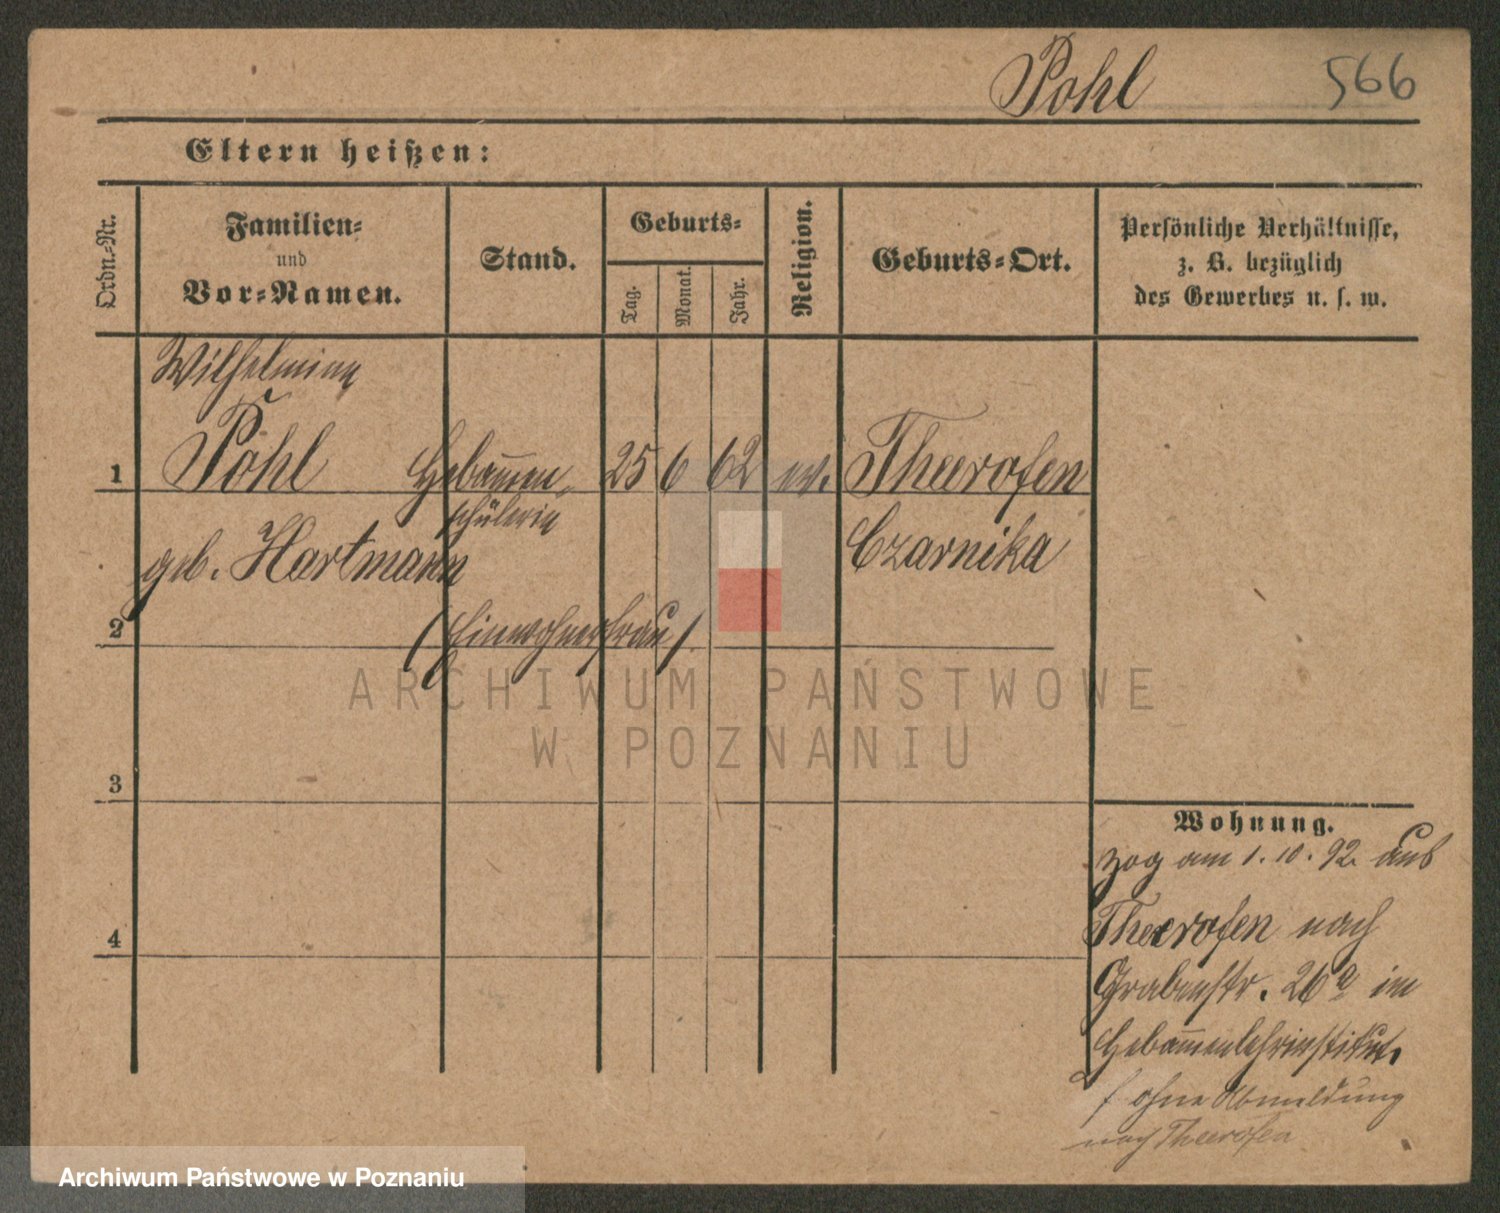 Pohl 566
Eltern heißen:
Ordn.-Nr.
Familien-
und
Vor-Namen.
Stand.
Geburts-
Tag.
Monat.
Jahr.
Religion.
Geburts-Ort.
Persönliche Verhältnisse,
z. B. bezüglich
des Gewerbes u. s. w.
Wilhelmine
1 Pohl Hebam̅en- 25 6 62 ev. Theerofen
schülerin
geb. Hartmann Czarnika
2 (Einwohnerfrau)
ARCHIWUM PAŃSTWOWE
W POZNANIU
3
Wohnung.
zog am 1. 10. 92. aus
Theerofen nach
4
Grabenstr. 26a im
Hebam̅enlehrinstitut.
ohne Abmeldung
nach Theerofen
Archiwum Państwowe w Poznaniu